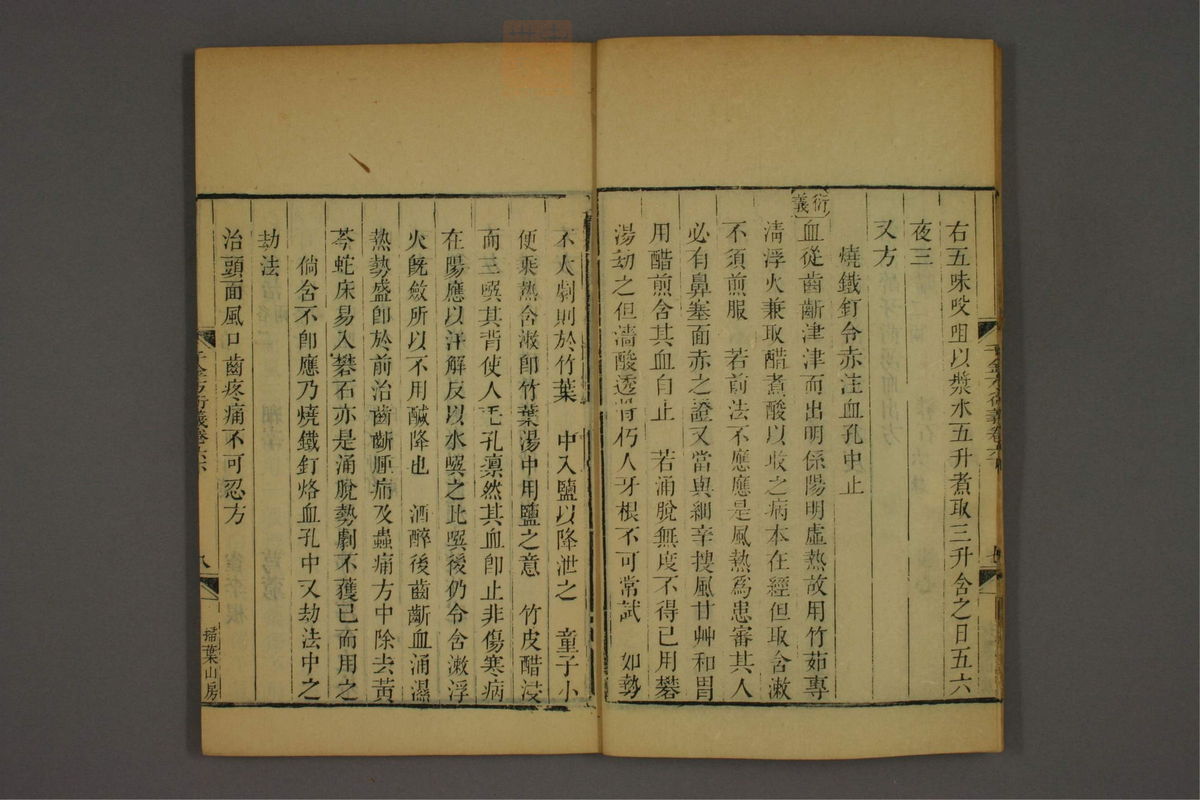 右五味㕮咀以漿水五升煮取三升含之日五六
夜三
又方
燒鐵釘令赤注血孔中止
衍義
血從齒齗津津而出明係陽明虛熱故用竹茹專
淸浮火兼取醋煮酸以收之病本在經但取含漱
不須煎服　若前法不應應是風熱爲患審其人
必有鼻塞面赤之證又當與細辛搜風甘艸和胃
用醋煎含其血自止　若涌脫無度不得已用礬
湯劫之但濇酸透骨朽人牙根不可常試　如勢
不大劇則於竹葉　中入鹽以降泄之　童子小
便乘熱含漱卽竹葉湯中用鹽之意　竹皮醋浸
而三噀其背使人毛孔凛然其血卽止非傷寒病
在陽應以汗解反以水噀之此噀後仍令含漱浮
火旣斂所以不用鹹降也　酒醉後齒齗血涌濕
熱勢盛卽於前治齒齗腫痛及蟲痛方中除去黃
芩蛇床易入礬石亦是涌脫勢劇不獲已而用之
倘含不卽應乃燒鐵釘烙血孔中又劫法中之
劫法
治頭面風口齒疼痛不可忍方
千金方衍義卷六
八
掃葉山房